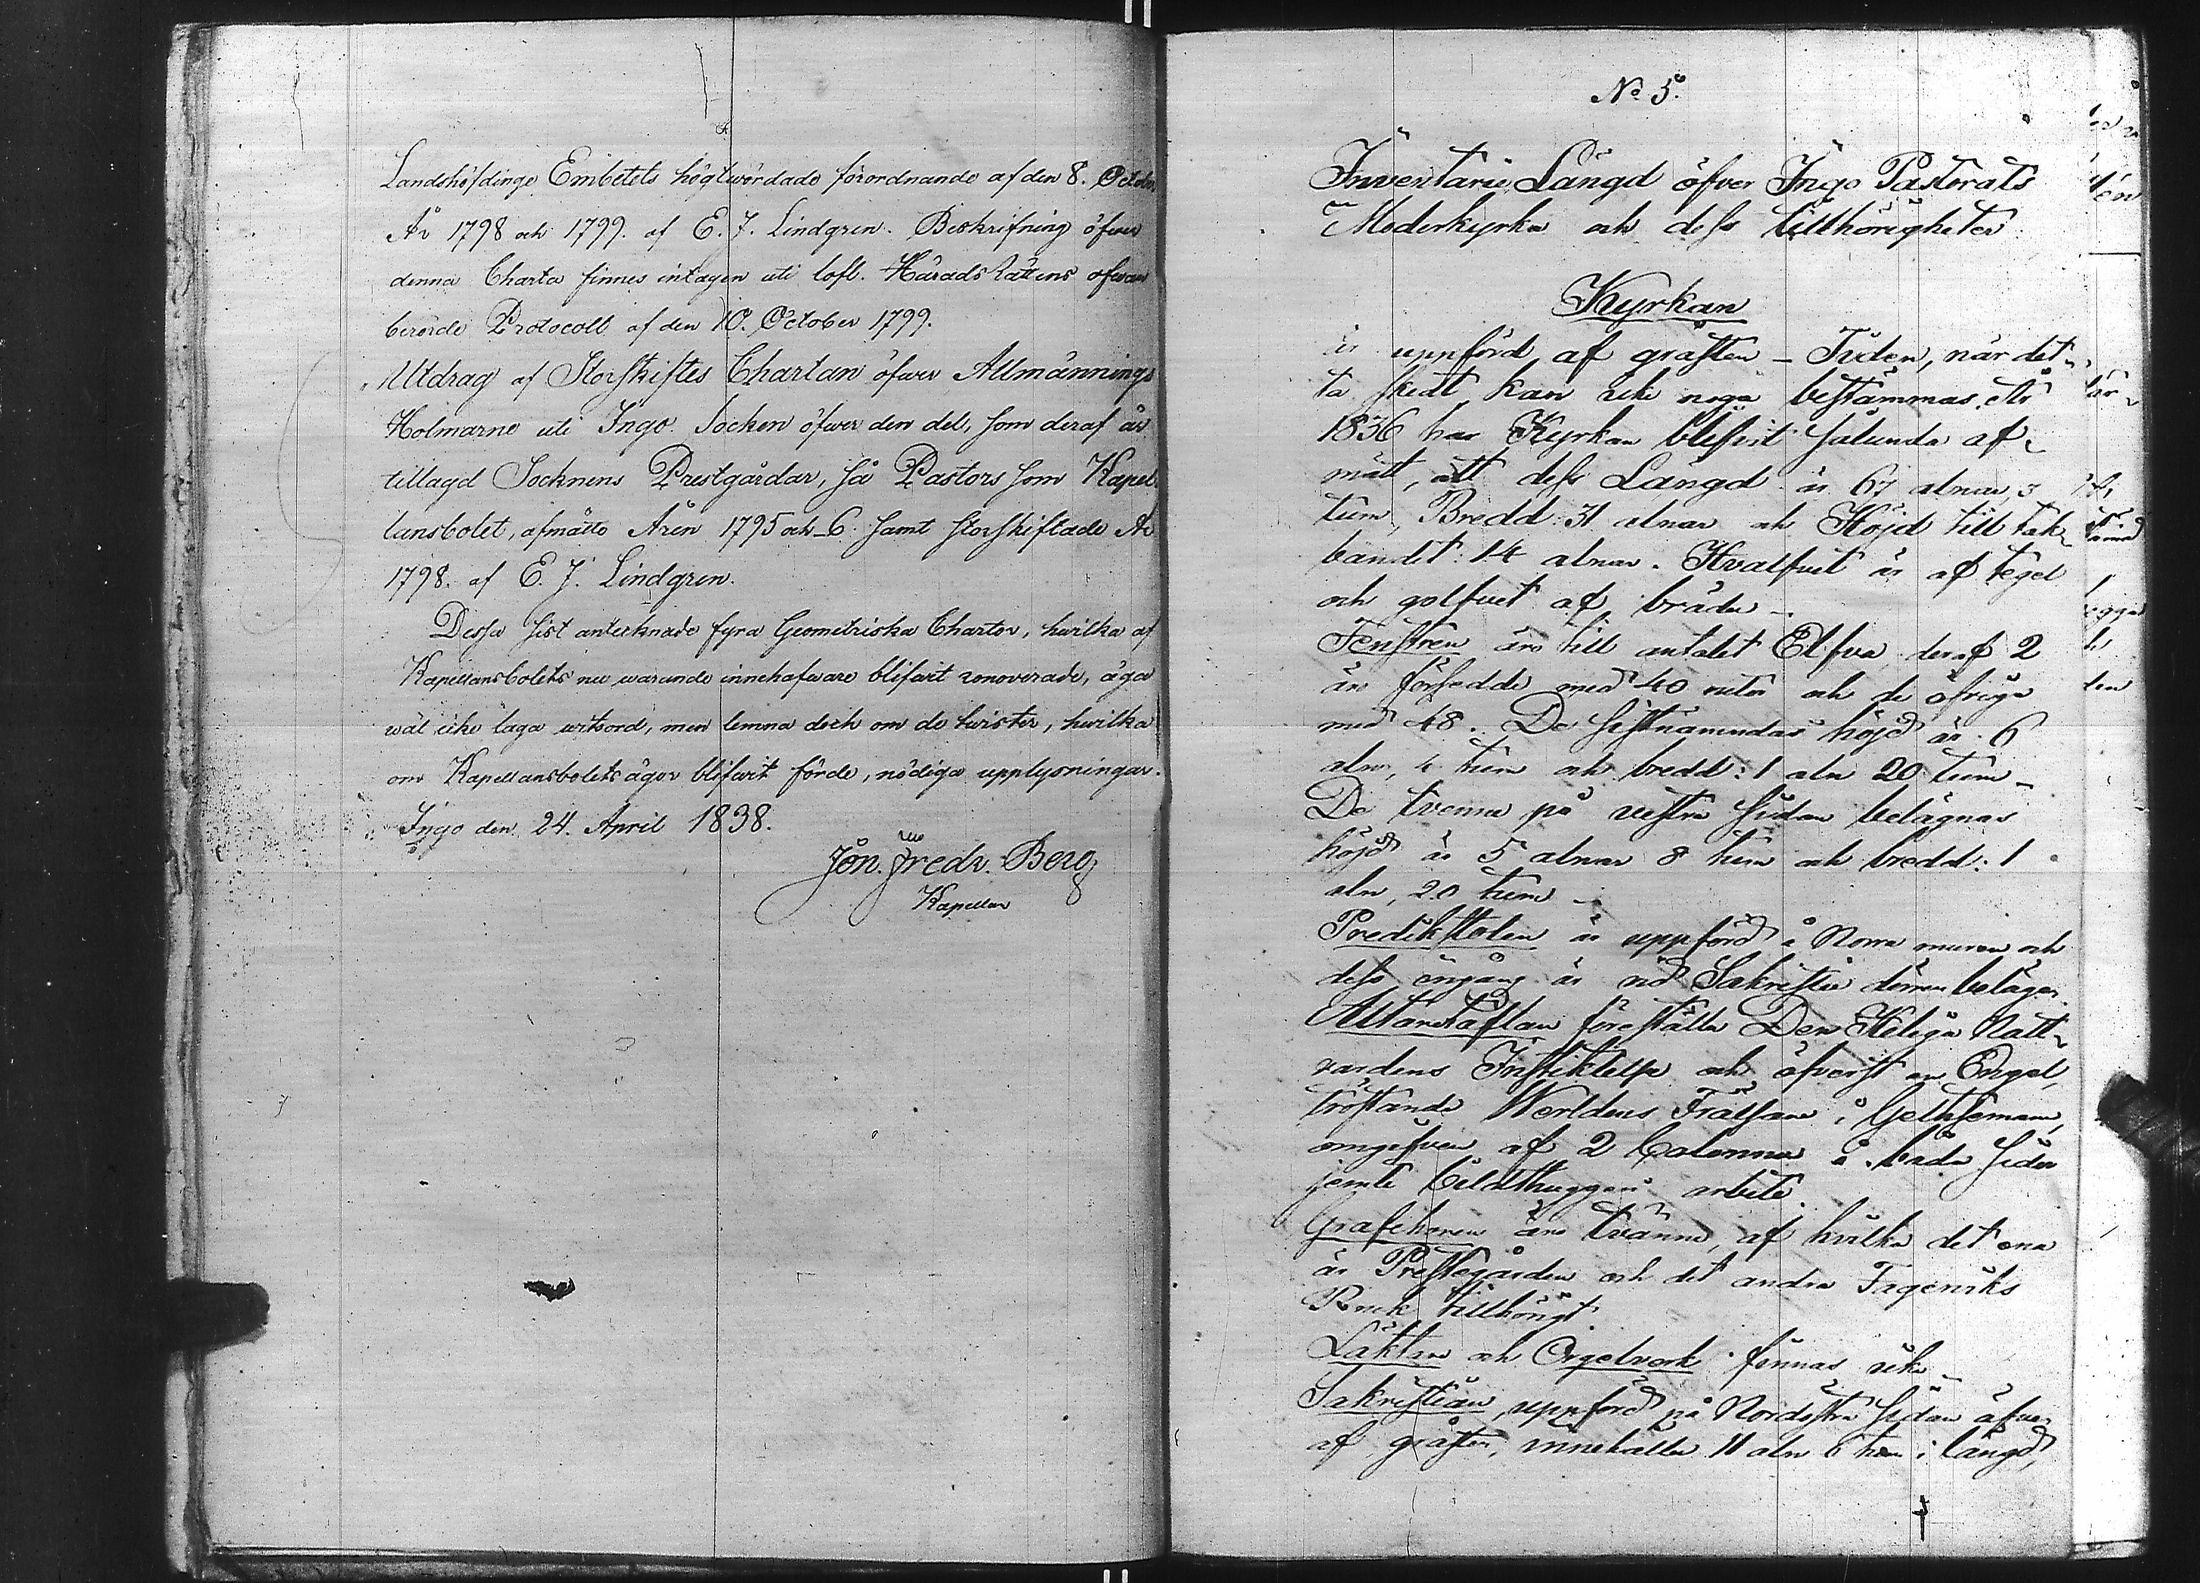 Landshöfdinge Embetets högtwördade förordnande af den 8. Octobr
År 1798 och 1799. af E. J. Lindgren. Beskrifning öfwer
denna Charta finnes intagen uti lofl. HäradsRättens ofwan
berörde Protocoll af den 10. October 1799.
Utdrag af Storskiftes Chartan öfwer Allmännings
Holmarne uti Ingo Socken öfwer den del, som deraf är
tillagd Socknens Prestgårdar, så Pastors som Kapel
lansbolet, afmätte Åren 1795 och _6. samt storskiftade År
1798. af E. J. Lindgren.
Dessa sist antecknade fyra Geometriska Chartor, hwilka af
Kapellansbolets nu warande innehafware blifwit renoverade, äga
wäl icke laga witsord, men lemna dock om de twister, hwilka
om Kapellansbolets ägor blifwit förde, nödiga upplysningar.
Ingo den 24. April 1838.
Jon. Fredr. Berg
Kapellan
No 5.
Inventarie Längd öfver Ingo Pastorats
Moderkyrka och dess tillhörigheter
Kyrkan
är uppförd af gråsten _ Tiden, när det
ta skedt kan icke noga bestämmas. År
1836 har Kyrkan blifvit sålunda af
mätt, att dess Längd är 67 alnar, 3
tum, Bredd 31 alnar och Höjd till tak
bandet 14 alnar. Hvalfvet är af tegel
och golfvet af bräder _
Fenstren äro till antalet Elfva deraf 2
äro försedde med 40 rutor och de öfriga
med 48. De sistnämndas höjd är 6
aln, 4 tum och bredd: 1 aln 20 tum _
De tvenne på vestra sidan belägnas
höjd är 5 alnar 8 tum och bredd: 1
aln, 20 tum _
Predikstolen är uppförd å Norra muren och
dess ingång är vid Sakristie dörren belägen.
Altartaflan föreställer Den Heliga Natt
vardens Instiktelse och öfverst en Engel,
tröstande Werldens Frälsare i Gethsemane,
omgifven af 2 Colonner å båda sidor
jemte bildthuggeri arbete.
Grafchoren äro tvänne, af hvilka det ena
är Prestegården och det andra Fagerviks
Bruk tillhörigt.
Läktare och Orgelverk finnas icke _
Sakristian, uppförd på Nordöstra sidan äfven
af gråsten, innehåller 11 aln 6 tum i längd,